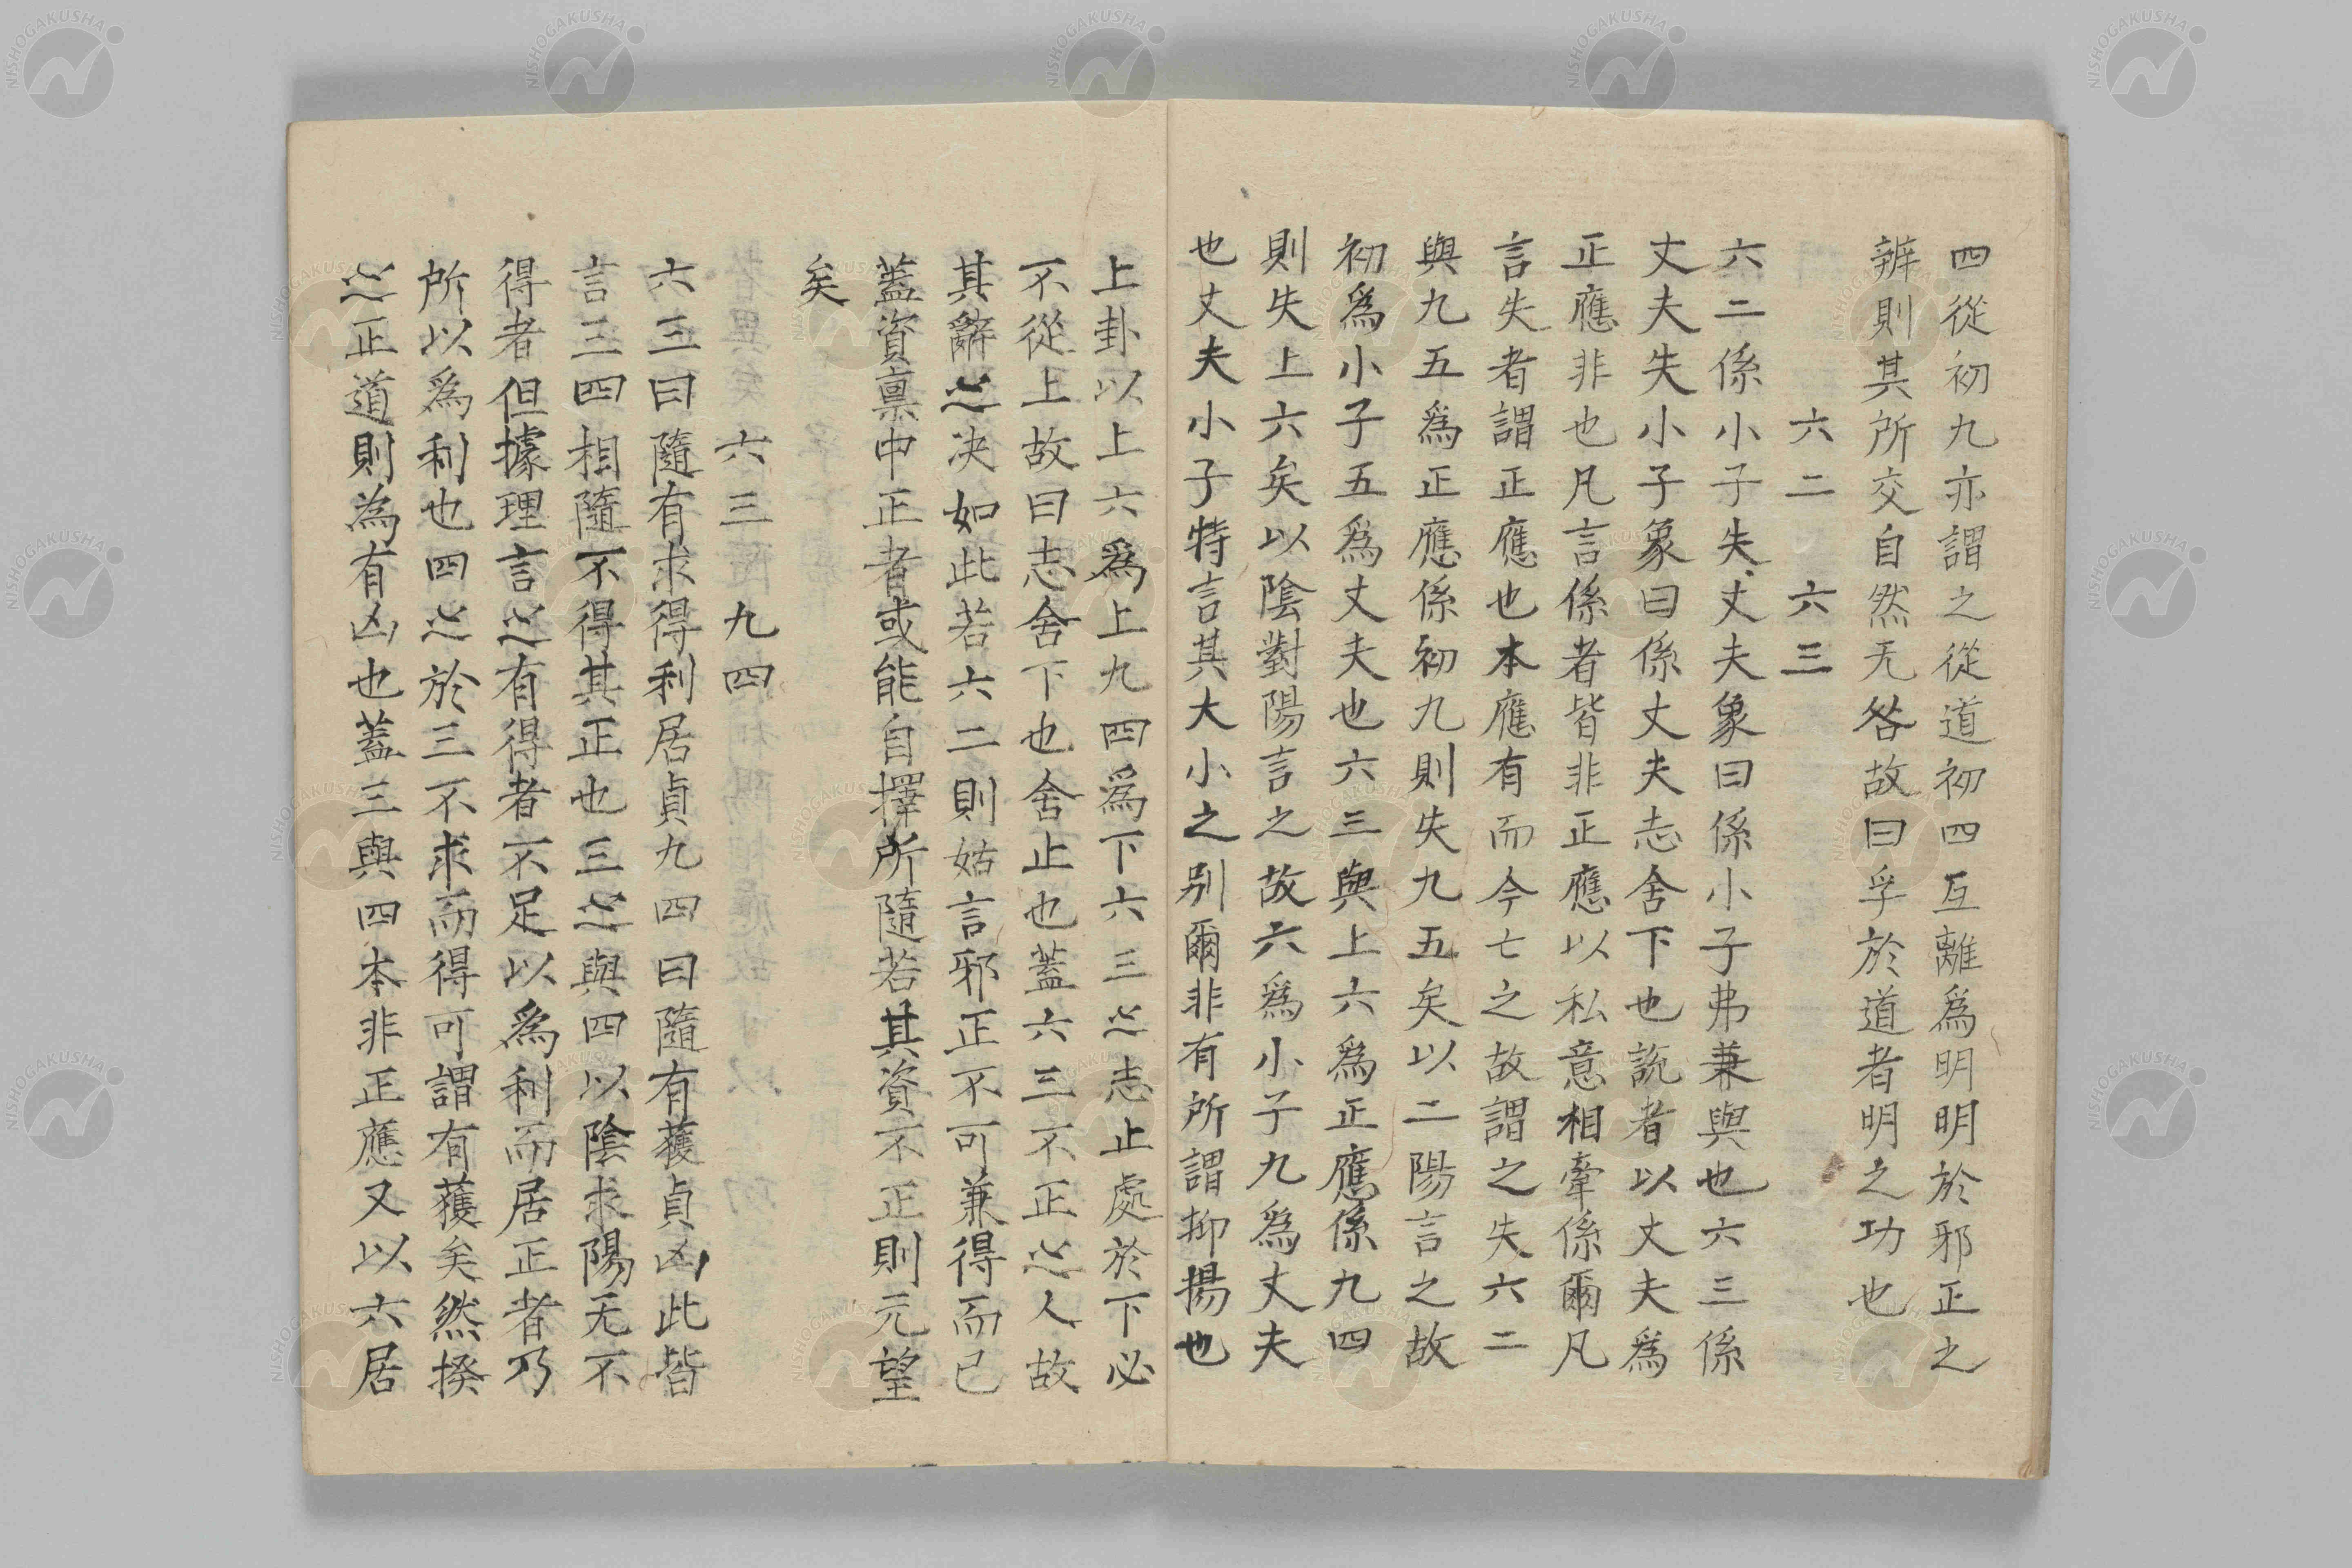 四從初九亦謂之從道初四互離爲明明於邪正之
辨則其所交自然无咎故曰孚於道者明之功也
六二 六三
六二係小子失丈夫象曰係小子弗兼與也六三係
丈夫失小子象曰係丈夫志舍下也說者以丈夫爲
正應非也凡言係者皆非正應以私意相牽係爾凡
言失者謂正應也本應有而今亡之故謂之失六二
與九五爲正應係初九則失九五矣以二陽言之故
初爲小子五爲丈夫也六三與上六爲正應係九四
則失上六矣以陰對陽言之故六爲小子九爲丈夫
也丈夫小子特言其大小之别爾非有所謂抑揚也
上卦以上六爲上九四爲下六三之志止處於下必
不從上故曰志舍下也舍止也蓋六三不正之人故
其辭之决如此若六二則姑言邪正不可兼得而已
蓋資禀中正者或能自擇所隨若其資不正則元望
矣
六三 九四
六三曰隨有求得利居貞九四曰隨有獲貞凶此皆
言三四相隨不得其正也三之與四以陰求陽无不
得者但據理言之有得者不足以爲利而居正者乃
所以爲利也四之於三不求而得可謂有獲矣然揆
之正道則為有凶也蓋三與四本非正應又以六居
NISHOGAKUSHA